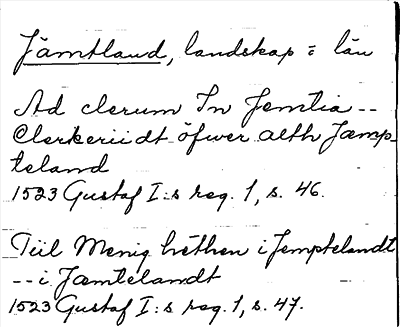 Jämtland, landskap o län
Ad clerum In Jemtia --
Clerkerii dt öfwer alth Jæmp-
teland
1523 Gustaf I:s reg. 1, s. 46.
Tiil Menig hethen i Jemptelandt
-- i Jæmtelandt
1523 Gustaf I:s reg. 1, s. 47.